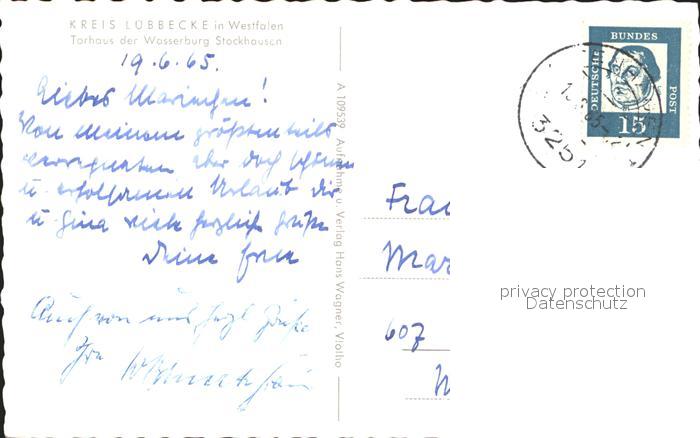 KREIS LÜBBECKE in Westfalen
Torhaus der Wasserburg Stockhausen
19.6.65.
Liebes Marinchen!
Von meinem größtenteils
verregneten aber doch schönen
u. erfolgreichen Urlaub dir
u. Gina viele herzliche Grüße
Deine
Auch von uns herzl. Grüße
Ihr
A 109539 Aufnahme u. Verlag Hans Wagner, Vlotho
DEUTSCHE
BUNDES
POST
15
325
Frau
Mar
607
privacy protection
Datenschutz